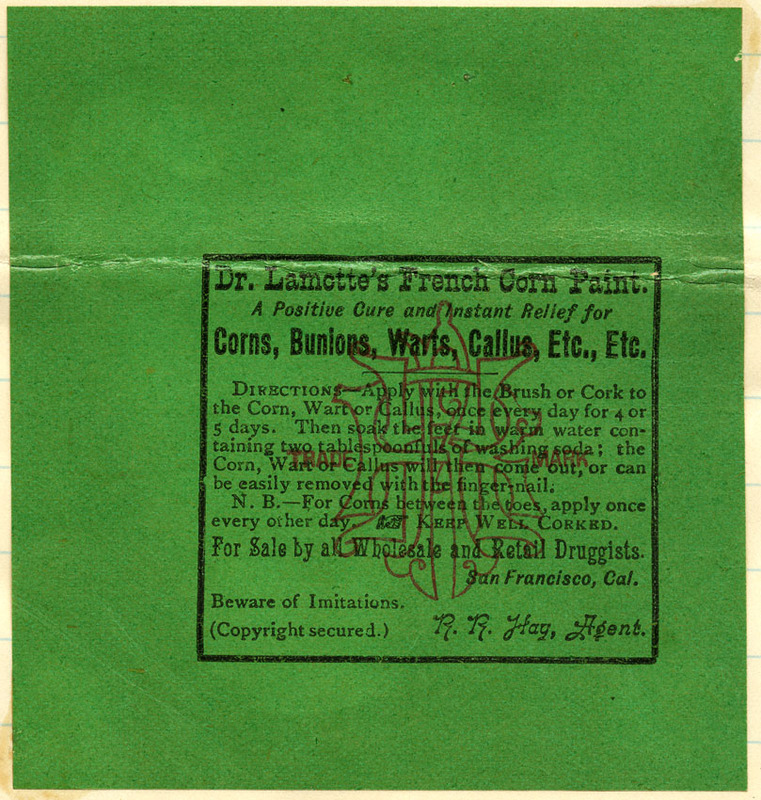 Dr. Lamotte's French Corn Paint.
A Positive Cure and Instant Relief for
Corns, Bunions, Warts, Callus, Etc., Etc.
DIRECTIONS—Apply with the Brush or Cork to
the Corn, Wart or Callus, once every day for 4 or
5 days. Then soak the feet in warm water con-
taining two tablespoonfuls of washing soda; the
TRADE MARK
Corn, Wart or Callus will then come out, or can
be easily removed with the finger-nail.
N. B.—For Corns between the toes, apply once
every other day. KEEP WELL CORKED.
For Sale by all Wholesale and Retail Druggists.
San Francisco, Cal.
Beware of Imitations.
(Copyright secured.) R. R. Hay, Agent.